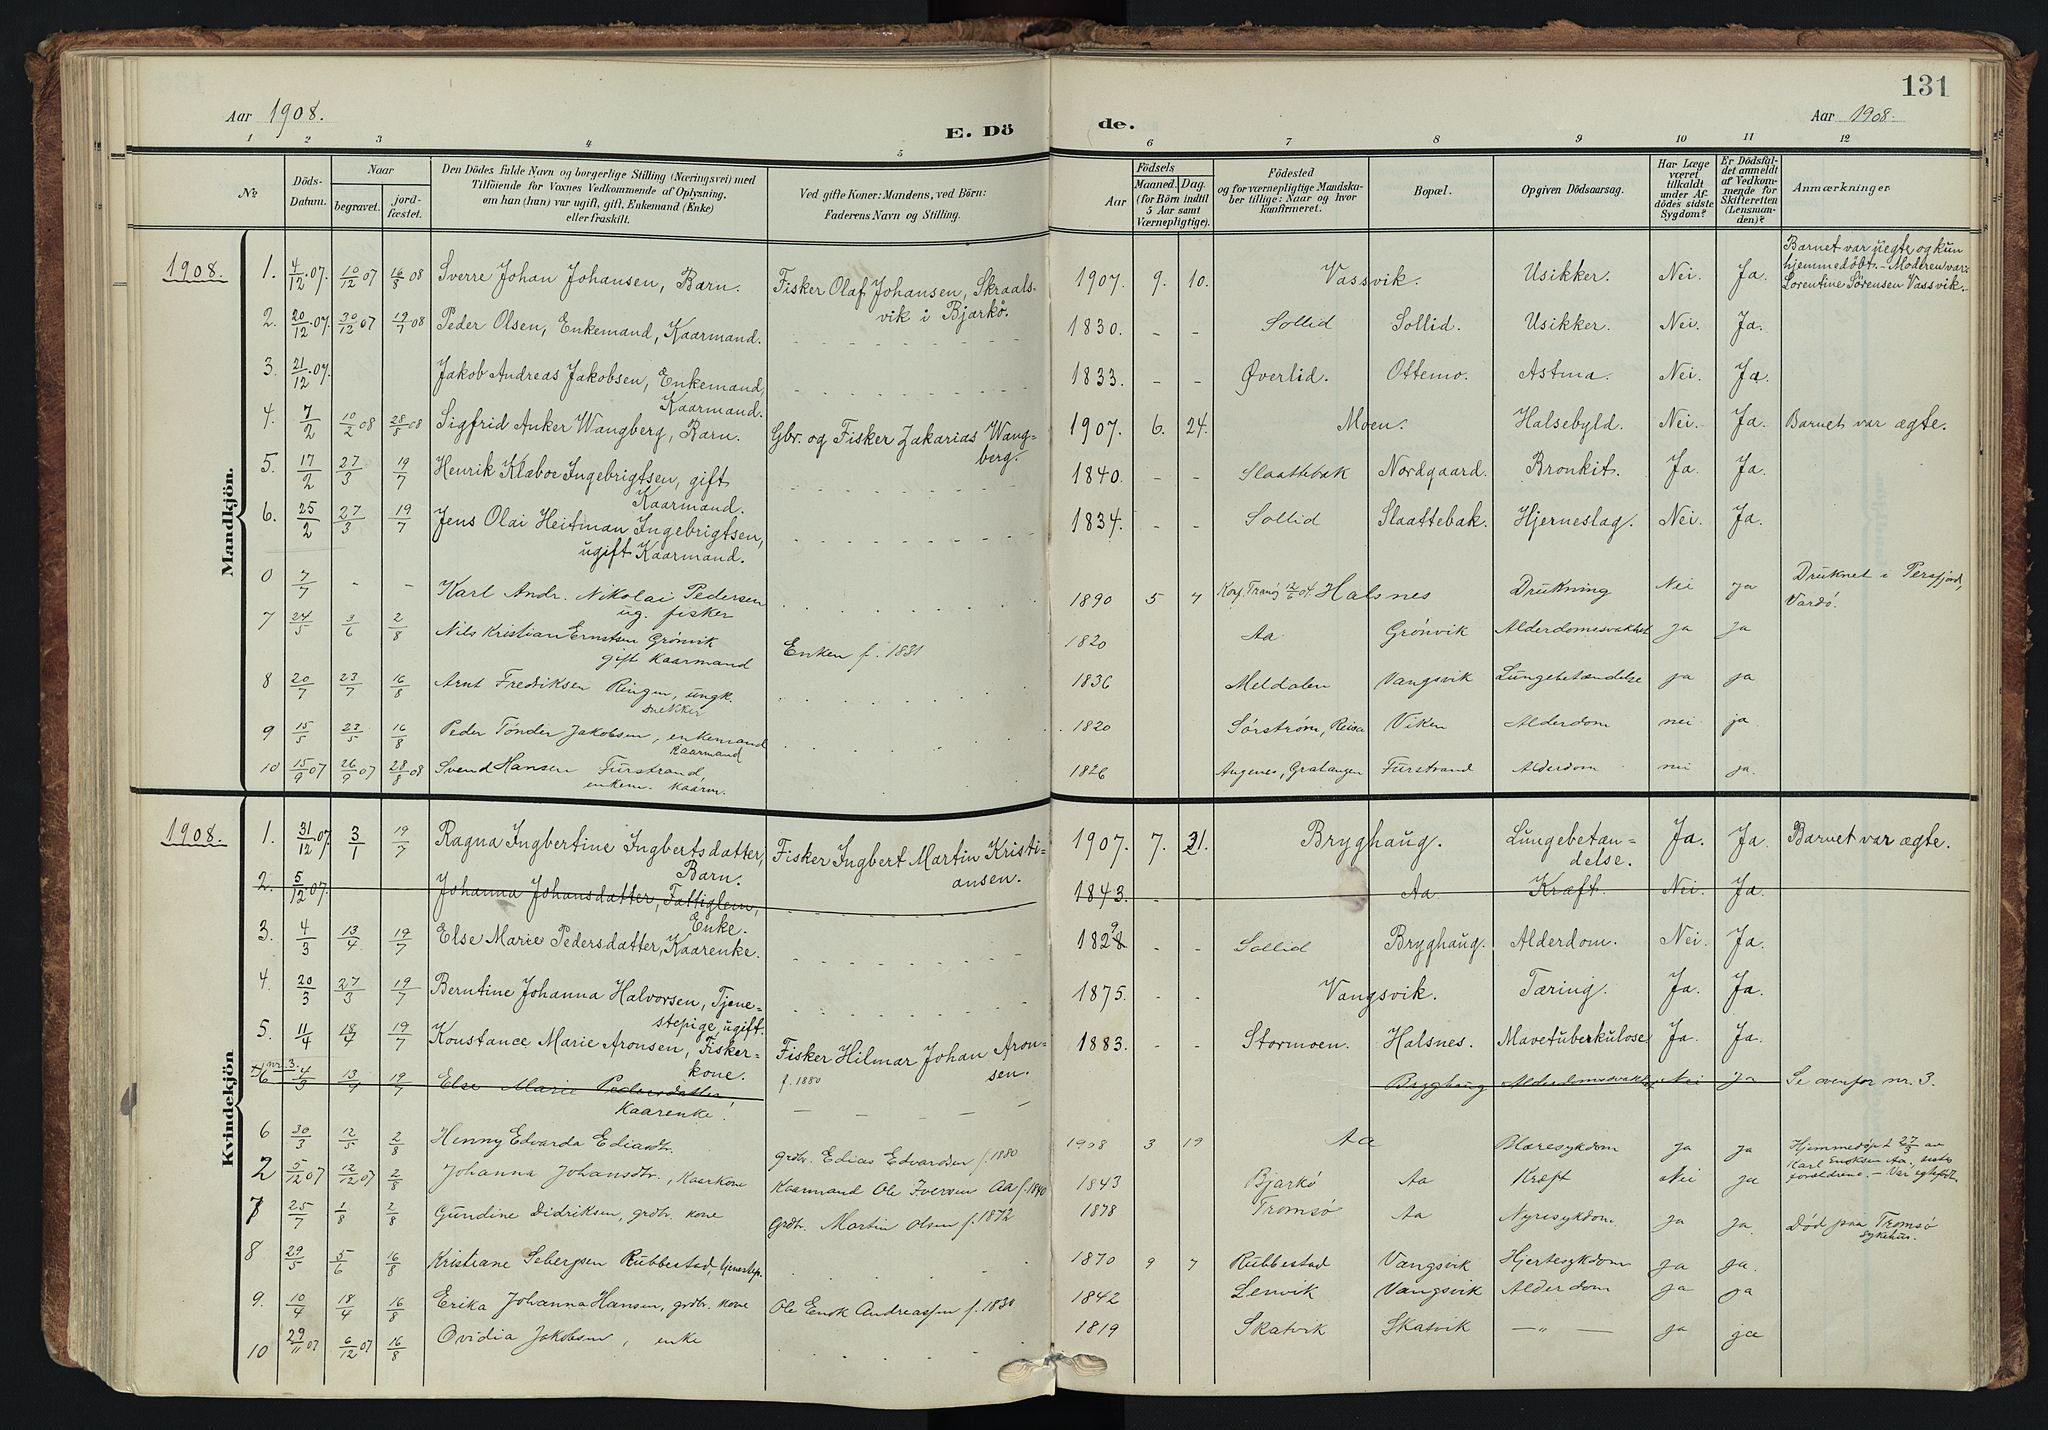 131
Aar 1908.
E. Dö de.
Aar 1908.
1 2 3 4 5 6 7 8 9 10 11 12
No
Döds-Datum.
Naar
begravet.
jord-fæstet.
Den Dödes fulde Navn og borgerlige Stilling (Næringsvei) med
Tilföiende for Voxnes Vedkommende af Oplysning,
om han (hun) var ugift, gift, Enkemand (Enke)
eller fraskilt.
Ved gifte Koner: Mandens, ved Börn:
Faderens Navn og Stilling.
Födsels
Aar
Maaned. Dag.
(for Börn indtil
5 Aar samt
Værnepligtige).
Födested
og for værnepligtige Mandska-
ber tillige: Naar og hvor
konfirmeret.
Bopæl.
Opgiven Dödsaarsag.
Har Læge
været
tilkaldt
under Af-
dödes sidste
Sygdom?
Er Dödsfal-
det anmeldt
af Vedkom-
mende for
Skifteretten
(Lensman-
den)?
Anmærkninger
Mandkjön.
1908.
1. 4/12 07. 10/12 07 16/8 08 Sverre Johan Johansen, Barn. Fisker Olaf Johansen, Skraals-
vik i Bjarkö. 1907. 9. 10. Vassvik. Usikker. Nei. Ja. Barnet var uegte og kun
hjemmedöbt. – Moderen var:
Lorentine Sørensen Vassvik.
2. 20/12 07. 30/12 07 19/7 08 Peder Olsen, Enkemand, Kaarmand. 1830. - - Sollid Sollid. Usikker. Nei. Ja.
3. 21/12 07. Jakob Andreas Jakobsen, Enkemand,
Kaarmand. 1833. - - Øverlid. Ottemo. Astma. Nei. Ja.
4. 7/2 10/2 08 28/5 08 Sigfrid Anker Wangberg, Barn. Gbr. og Fisker Zakarias Wang-
berg. 1907. 6. 24. Moen. Halsebyld. Nei. Ja. Barnet var ægte.
5. 17/2 27/3 19/7 Henrik Klæboe Ingebrigtsen, gift
Kaarmand. 1840. - - Slaattebak Nordgaard. Bronkit. Ja. Ja.
6. 25/2 27/3 19/7 Jens Olai Heitman Ingebrigtsen,
ugift Kaarmand. 1834. - - Sollid Slaattebak. Hjerneslag. Nei. Ja.
0 7/7 - - Karl Andr. Nikolai Pedersen
ug. fisker 1890 5 7 Konf. Tranøy 12/6 04. Halsnes Drukning Nei ja Druknet i Persfjord,
Vardö.
7 24/5 3/6 2/8 Nils Kristian Ernstsen Grönvik
gift Kaarmand Enken f. 1831 1820 Aa Grönvik Alderdomssvakhet ja ja
8 20/7 23/7 16/8 Arnt Fredriksen Ringen, ungk.
1836 Meldalen Vangsvik Lungebetændelse ja ja
9 15/5 23/5 16/8 Peder Tönder Jakobsen, enkemand
Kaarmand 1820 Sørstrøm, Reisa Viken Alderdom nei ja.
10 15/9 07 26/9 07 28/8 08 Svend Hansen Furstrand,
enkem. Kaarm. 1826 Angenes, Gratangen Furstrand Alderdom nei ja.
Kvindekjön
1908.
1. 31/12 07. 3/1 19/7 Ragna Ingbertine Ingbertsdatter,
Barn. Fisker Ingbert Martin Kristi-
ansen. 1907. 7. 21. Bryghaug. Lungebetæn-
delse. Ja. Ja. Barnet var ægte.
2. 5/12 07. Johanna Johansdatter, Fattiglem,
Enke. 1843. - - Aa Kræft Nei. Ja.
3. 4/3 13/4 19/7 Else Marie Pedersdatter, Kaarenke. 1829 - - Sollid Bryghaug. Alderdom. Nei. Ja.
4. 20/3 27/3 19/7 Berntine Johanna Halvorsen, Tjene-
stepige, ugift. 1875. - - Vangsvik. Tæring. Ja. Ja.
5. 11/4 18/4 19/7 Konstance Marie Aronsen, Fisker-
kone. Fisker Hilmar Johan Aron-
sen. f. 1880 1883. - - Stormoen. Halsnes. Mavetuberkulose Ja. Ja.
nr. 3. 6 4/3 13/4 19/7 Else Marie Pedersdatter
Kaarenke! Bryghaug Alderdomssvakhet Nei ja Se ovenfor nr. 3.
6 30/3 12/5 2/8 Henny Edvarda Ediasdtr. grdbr. Edias Edvardsen f. 1880 1908 3 19 Aa Blæresykdom ja ja Hjemmedöpt 27/3 av
Karl Enoksen Aa,
forældrene. – Var egtefödt
2 5/12 07 12/12 07 2/8 Johanna Johansdtr., Kaarkone Kaarmand Ole Iversen Aa f. 1840 1843 Bjarkö Aa Kræft Nei ja
7 25/7 1/8 2/8 Gundine Didriksen, grdbr. kone Grdbr. Martin Olsen f. 1872 1878 Tromsø Aa Nyresykdom ja ja. Död paa Tromsø
sykehus.
8 29/5 5/6 16/8 Kristiane Sebergsen Rubbestad, tjenestep. 1870 9 7 Rubbestad Vangsvik Hjertesykdom ja ja.
9. 10/4 18/4 16/8 Erika Johanna Hansen, grdbr. kone Ole Enok Andreassen f. 1830 1842 Lenvik Vangsvik Alderdom ja ja
10 29/11 07 6/12 07 16/8 Ovidia Jakobsen, enke 1819 Skatvik Skatvik — „ — ja ja